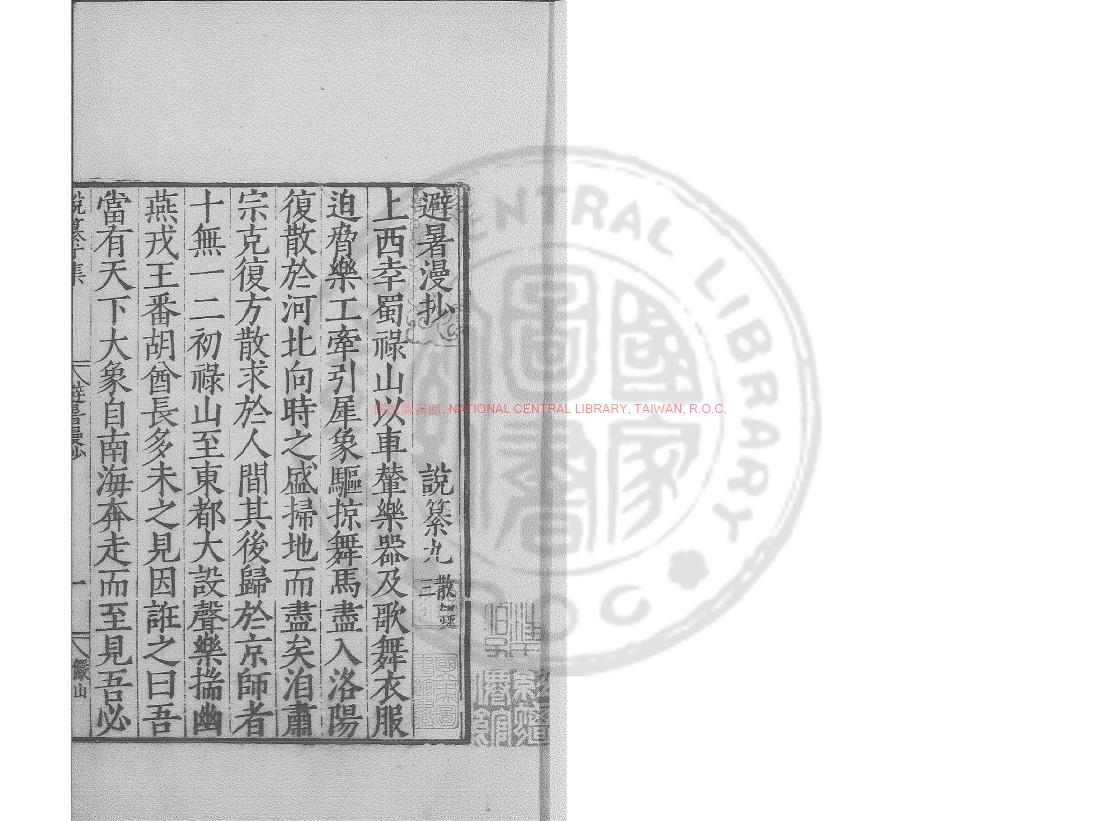 避暑漫抄 說纂九 散錄三
上西幸蜀祿山以車輦樂器及歌舞衣服
迫脅樂工牽引犀象驅掠舞馬盡入洛陽
復散於河北向時之盛掃地而盡矣洎肅
宗克復方散求於人間其後歸於京師者
十無一二初祿山至東都大設聲樂揣幽
燕戎王番胡酋長多未之見因誑之曰吾
當有天下大象自南海奔走而至見吾必
說纂丁集 避暑漫抄 一 儼山
NATIONAL CENTRAL LIBRARY, TAIWAN, R.O.C.
CENTRAL LIBRARY
R.O.C.
國家圖書館